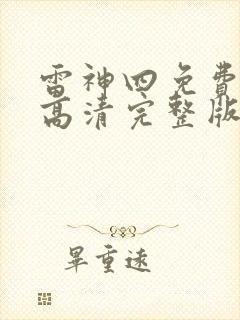 雷神四免费
高清完整版
畢重遠